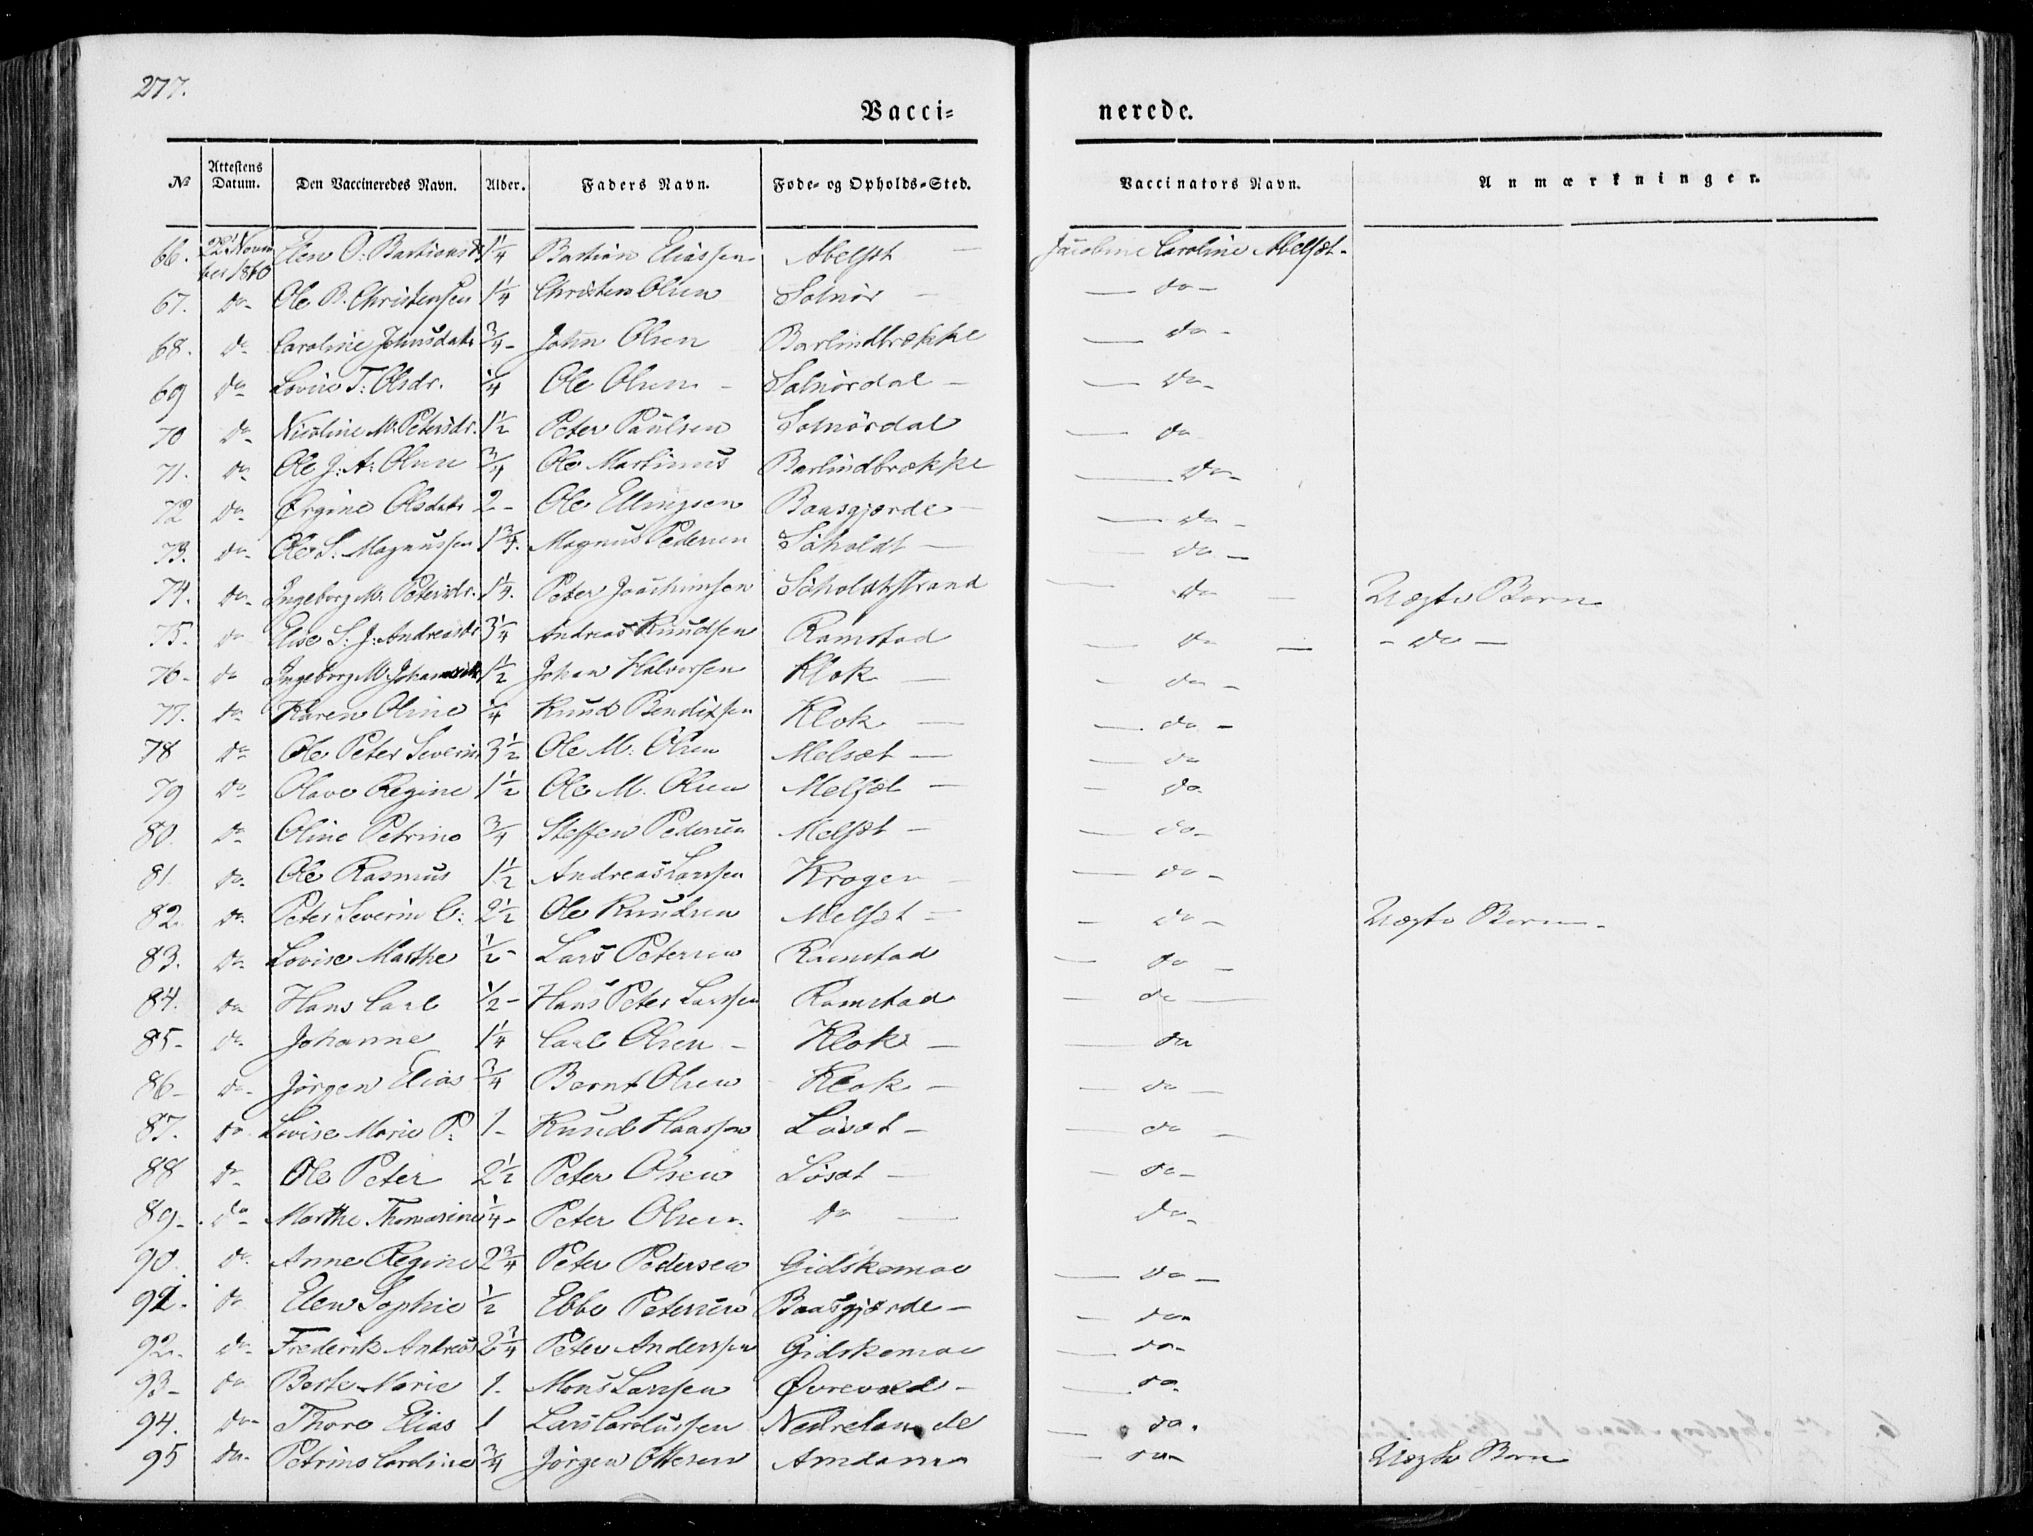 277.
Vacci= nerede.
№ Attestens Datum. Den Vaccineredes Navn. Alder. Faders Navn. Føde- og Opholds-Sted. Vaccinators Navn. Anmærkninger.
66. 22 Novem ber 1860 Elen O: Bastiansdr 1 1/4 Bastian Eliassen Abelsæt — Jacobine Caroline Abelsæt.
67. do Ole B. Christensen 1 1/4 Christen Olsen Solnør — — do —
68. do Caroline Johnsdatr 3/4 - John Olsen Barlindbrække — do -
69 do Lovise T. Olsdr. 1/4 Ole Olsen - Solnørdal — — do -
70 do Nicoline M. Petersdr. 1 1/2 Peter Paulsen Solnørdal — do
71. do Ole J: A: Olsen 3/4 Ole Martinus Barlindbrække — do -
72 do Ørgine Olsdatr 2 - Ole Ellingsen Baasgjærde — — do -
73. do Ole S. Magnussen 1 3/4. Magnus Pedersen Søholdt — — do -
74. do Ingeborg M. Petersdr. 1 1/4. Peter Joachimsen Søholdtstrand — do — Uægte Barn
75. do Elise S. J: Andreasdr 3 1/4 Andreas Knudsen Ramstad — do — - do -
76 - do Ingeborg M: Johansdtr 1 1/2 Johan Halvorsen Klok — — do -
77. do Karen Oline 1/4 Knud Bendixsen Klok — — do -
78 do Ole Peter Severin 3 1/2 Ole M. Olsen Melsæt — — do
79 do Olave Regine 1 1/2 Ole M. Olsen Melsæt — - do.
80. do Oline Petrine 3/4 Steffen Pedersen Melsæt — — do -
81. do Ole Rasmus 1 1/2 Andreas Larssen Krogen — — do -
82. do Peter Severin C: 2 1/2 Ole Knudsen Melsæt — - do - Uægte Barn.
83. do Lovise Marthe 1/2 - Lars Petersen Ramstad — do -
84. do Hans Carl 1/2 - Hans Peter Larssen Ramstad - do —
85 - do Johanne 1 1/4 Carl Olsen - Klok — — do
86 - do Jörgen Elias 3/4 Bernt Olsen Klok — — do -
87. do Lovise Marie P. 1 - Knud Haassen Løsæt - — do -
88 do Ole Peter 2 1/2 Peter Olsen Løsæt — - do -
89 - do Marthe Thomasine 1/4 - Peter Olsen do — do -
90. do Anne Regine 2 3/4 Peter Pedersen Gidskemoe — do -
91. do Elen Sophie 1/2 Ebbe Petersen Baasgjærde - - do
92. do Frederik Andreas 2 3/4 Peter Anderssen Gidskemoe — do -
93 - do Berte Marie 1. Mons Larssen Øvrevold - — do.
94. do Thore Elias 1 Lars Carolussen Nedrelande — do.
95 do Petrine Caroline 3/4 Jörgen Ottesen Amdam - do - Uægte Barn